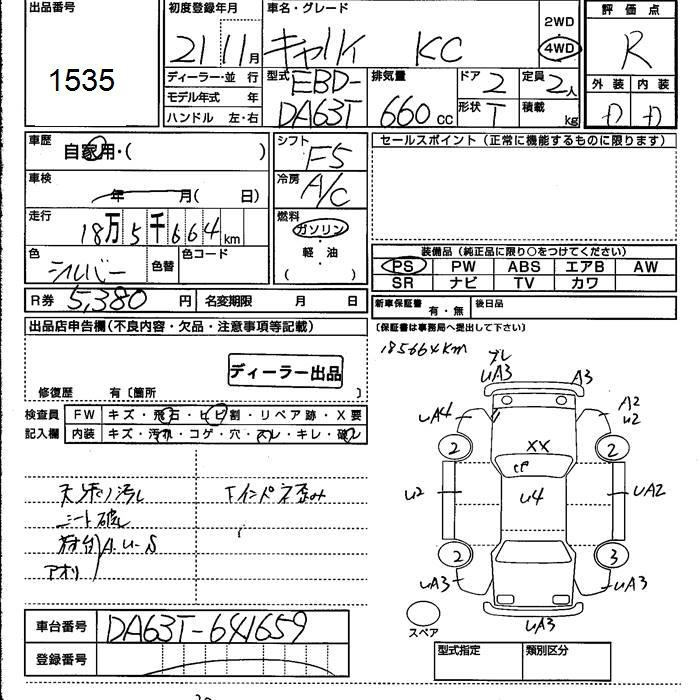 出品番号
1535
初度登録年月
21 11月
車名・グレード
キャリィ KC
2WD
4WD
評価点
R
ディーラー・並 行
モデル年式 年
ハンドル 左・右
型式 EBD-
DA63T
排気量
660cc
ドア 2
形状 T
定員 2人
積載 kg
外装 内装
D D
車歴
自家用・( )
シフト F5
セールスポイント(正常に機能するものに限ります)
車検
年 月( 日)
冷房 A/C
走行
18万5千664km
燃料
ガソリン
軽・油
( )
色 シルバー
色替
色コード
装備品(純正品に限り○をつけてください)
PS PW ABS エアB AW
SR ナビ TV カワ
R券 5,380円
名変期限 月 日
新車保証書 有・無
後日品
出品店申告欄(不良内容・欠品・注意事項等記載)
(保証書は事務局へ提出して下さい)
185664km
ディーラー出品
修復歴 有〔箇所 〕
検査員 FW キズ・飛石・ヒビ割・リペア跡・X要
記入欄 内装 キズ・汚れ・コゲ・穴・スレ・キレ・破レ
天張り汚れ
シート破レ
荷台 A.U-S
アオリ
インパネ歪み
UA3
A3
UA4
A2
U2
2
2
XX
U2
U4
UA2
2
3
UA3
UA3
UA3
スペア
車台番号 DA63T-641659
登録番号
型式指定 類別区分